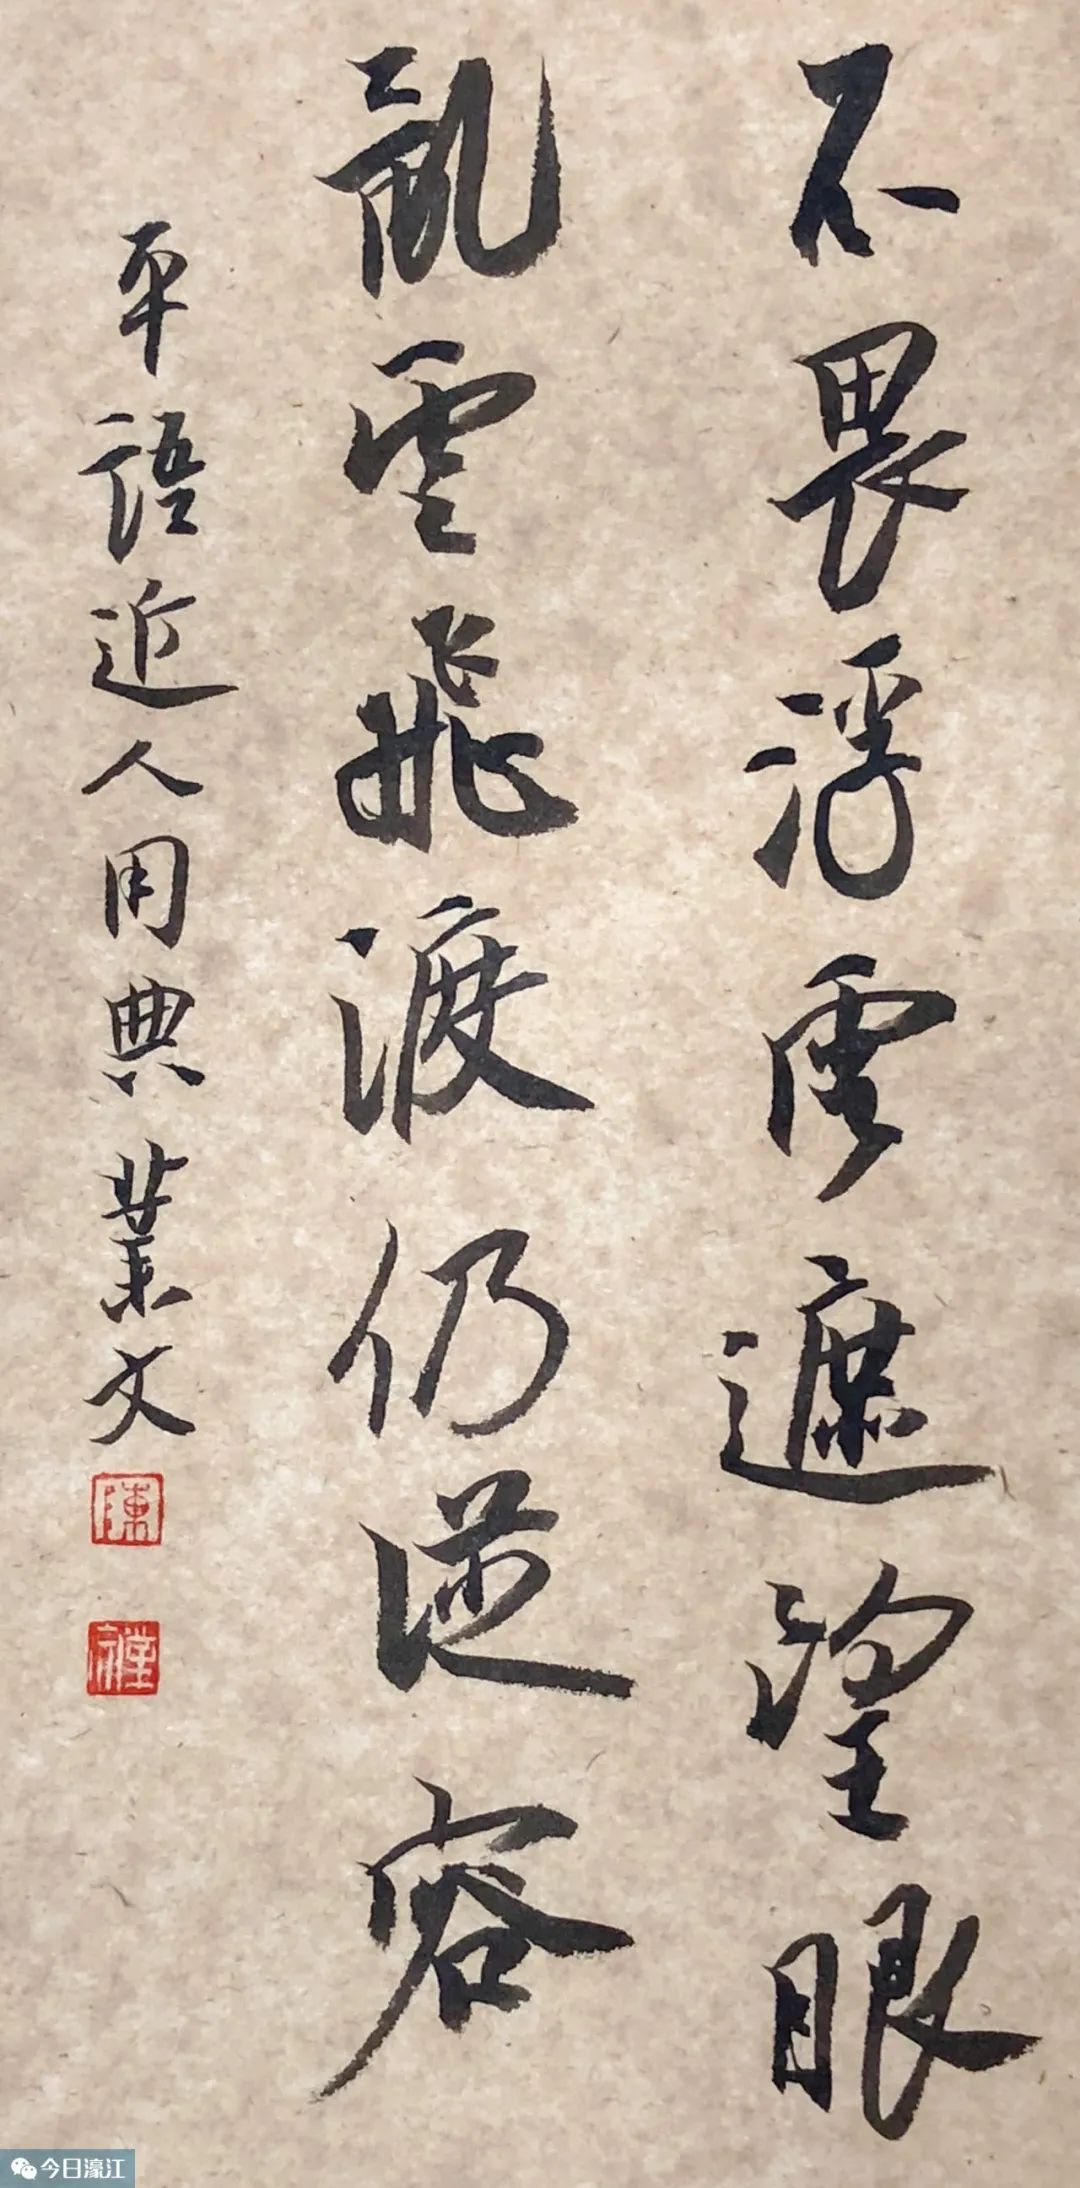 不畏浮雲遮望眼
亂雲飛渡仍從容
平語近人用典 業文
陳
今日濠江